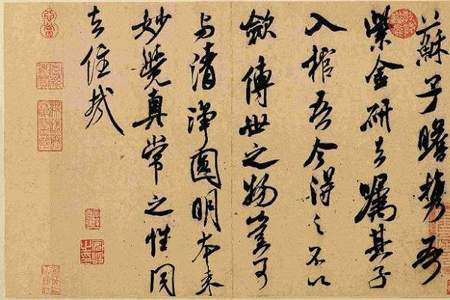 蘇子瞻攜吾
紫金研去囑其子
入棺吾今得之不以
斂傳世之物豈可
与清淨圓明本来
妙覺真常之性同
去住哉